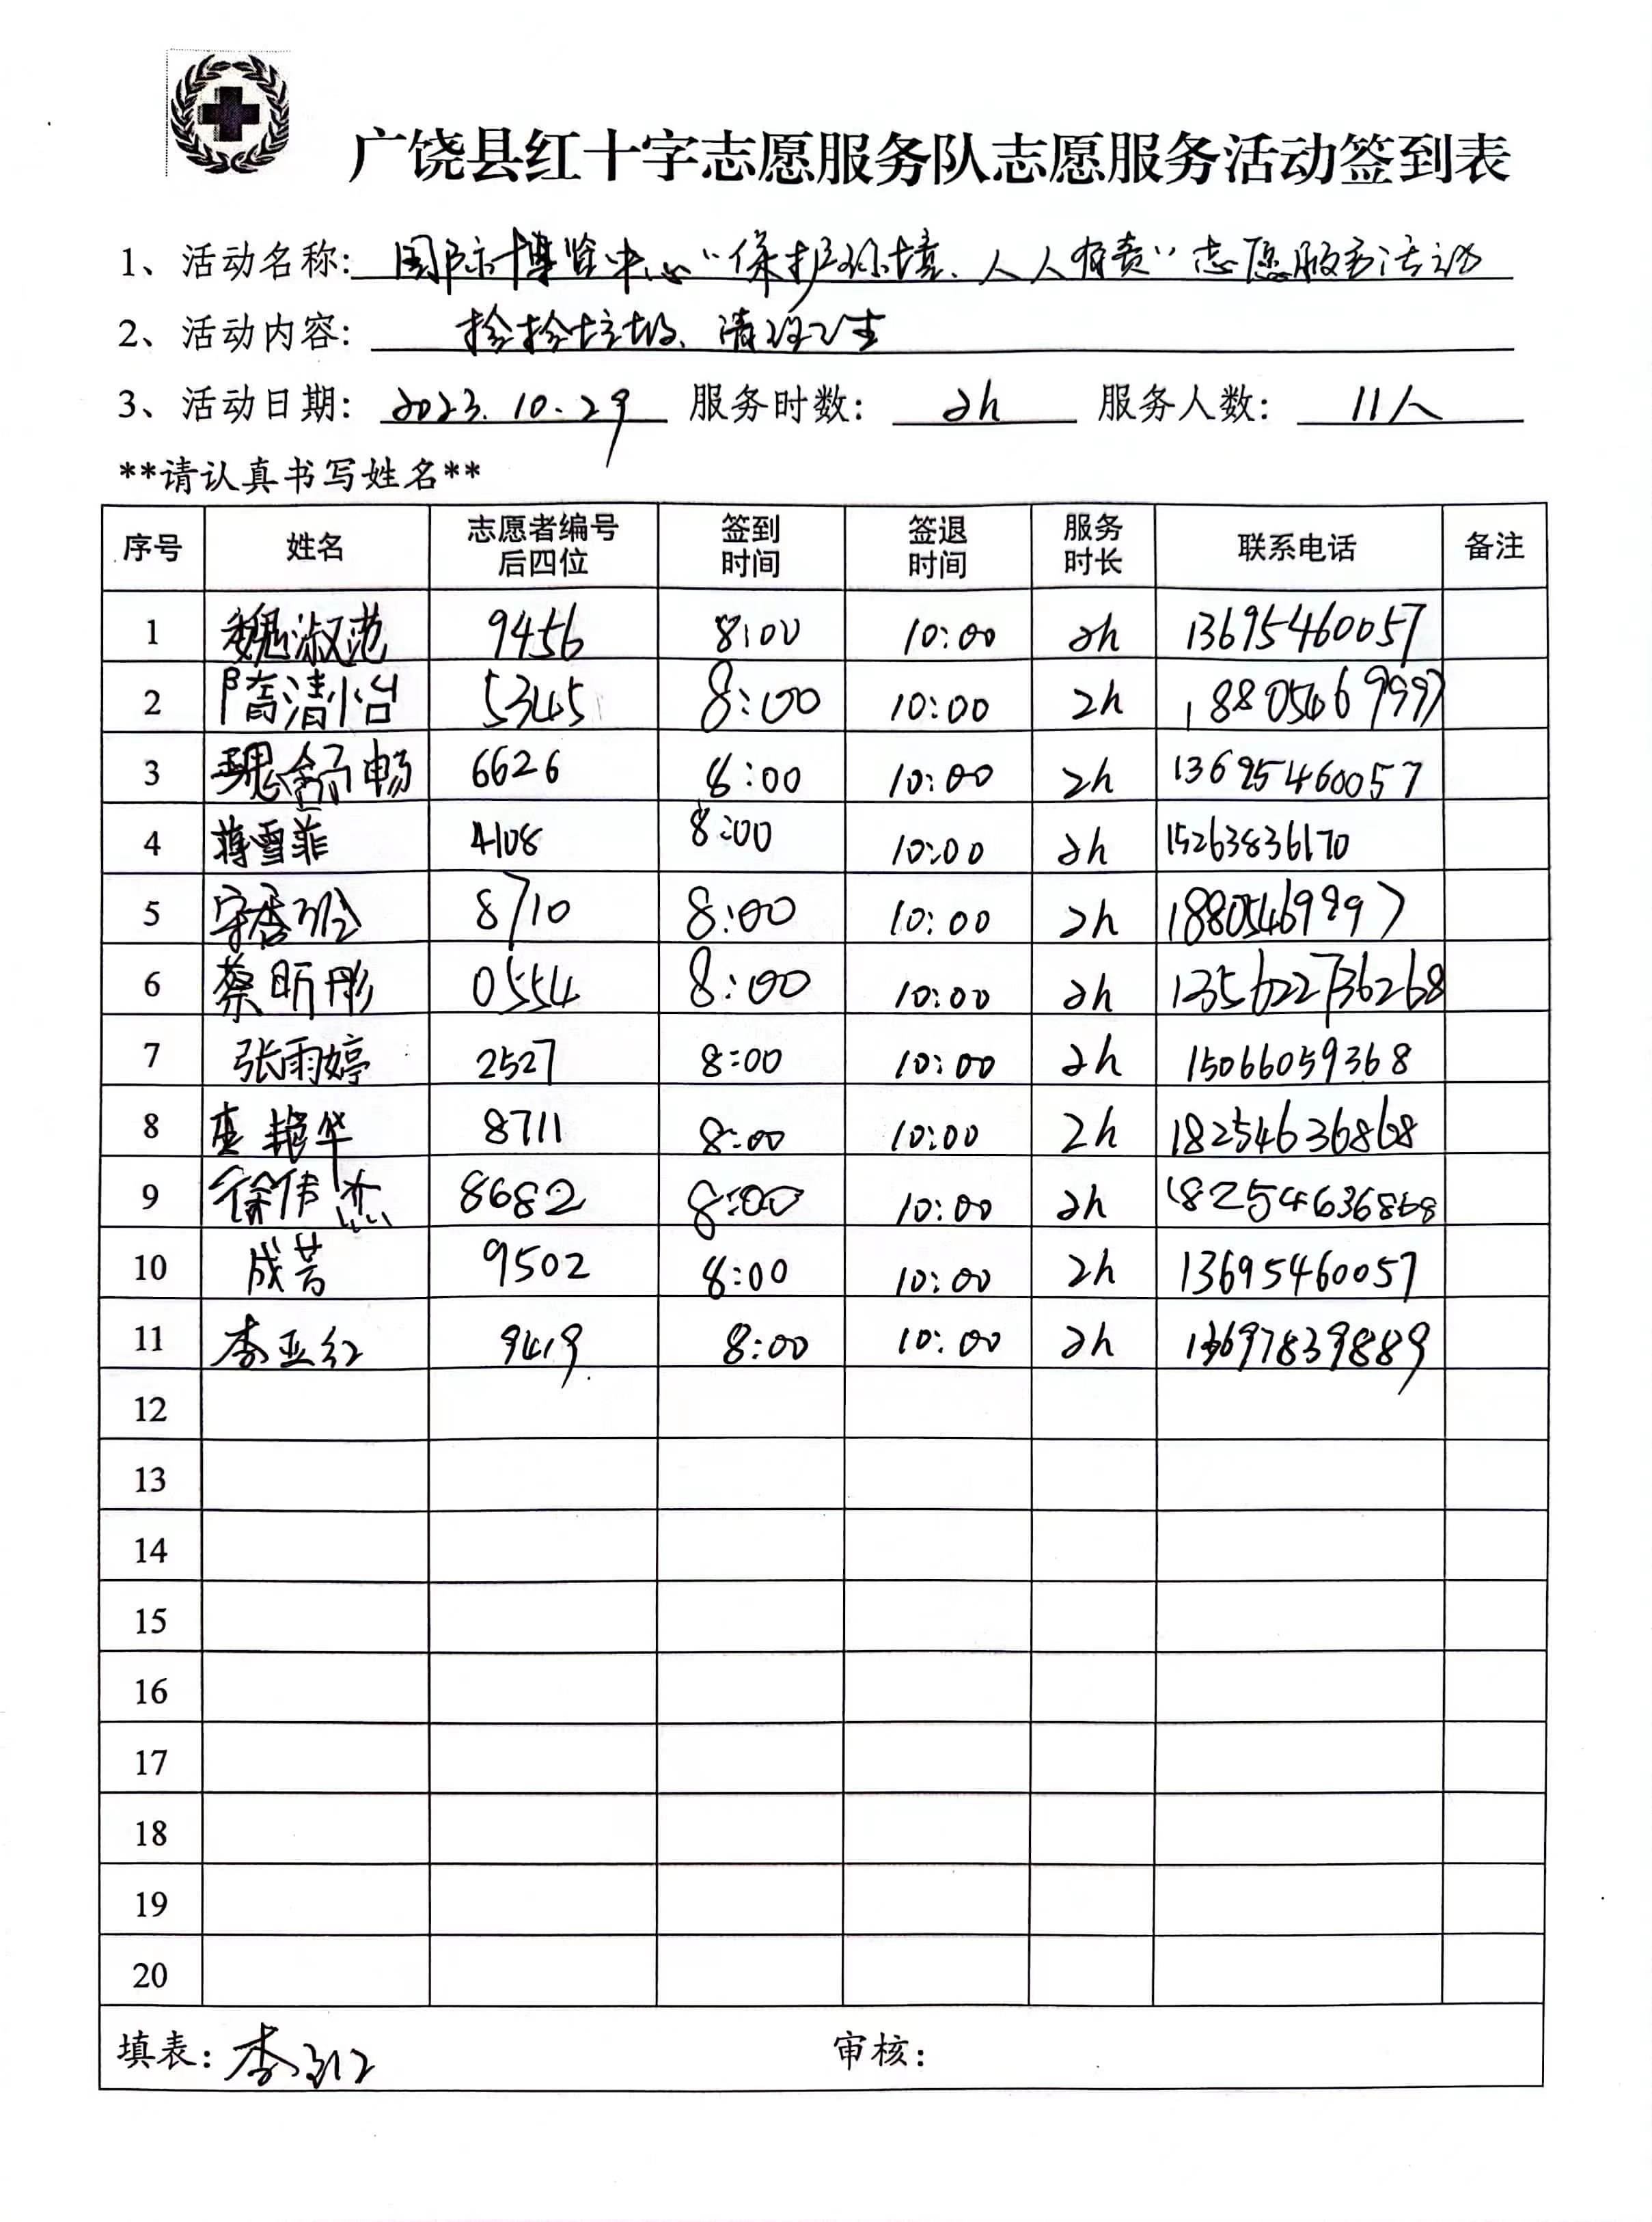 广饶县红十字志愿服务队志愿服务活动签到表
1、活动名称: 国际博览中心“保护环境、人人有责”志愿服务活动
2、活动内容: 捡拾垃圾、清理卫生
3、活动日期: 2023.10.29 服务时数: 2h 服务人数: 11人
**请认真书写姓名**
序号 姓名 志愿者编号后四位 签到时间 签退时间 服务时长 联系电话 备注
1 魏淑范 9456 8:00 10:00 2h 13695460057
2 隋清怡 5345 8:00 10:00 2h 18805469997
3 魏舒畅 6626 8:00 10:00 2h 13695460057
4 蒋雪菲 4108 8:00 10:00 2h 15263836170
5 8710 8:00 10:00 2h 18805469997
6 蔡昕彤 0554 8:00 10:00 2h 135622736268
7 张雨婷 2527 8:00 10:00 2h 15066059368
8 艳华 8711 8:00 10:00 2h 18254636868
9 徐伟杰 8682 8:00 10:00 2h 18254636868
10 成芳 9502 8:00 10:00 2h 13695460057
11 李亚红 9419 8:00 10:00 2h 13697839889
12
13
14
15
16
17
18
19
20
填表: 李亚红 审核: